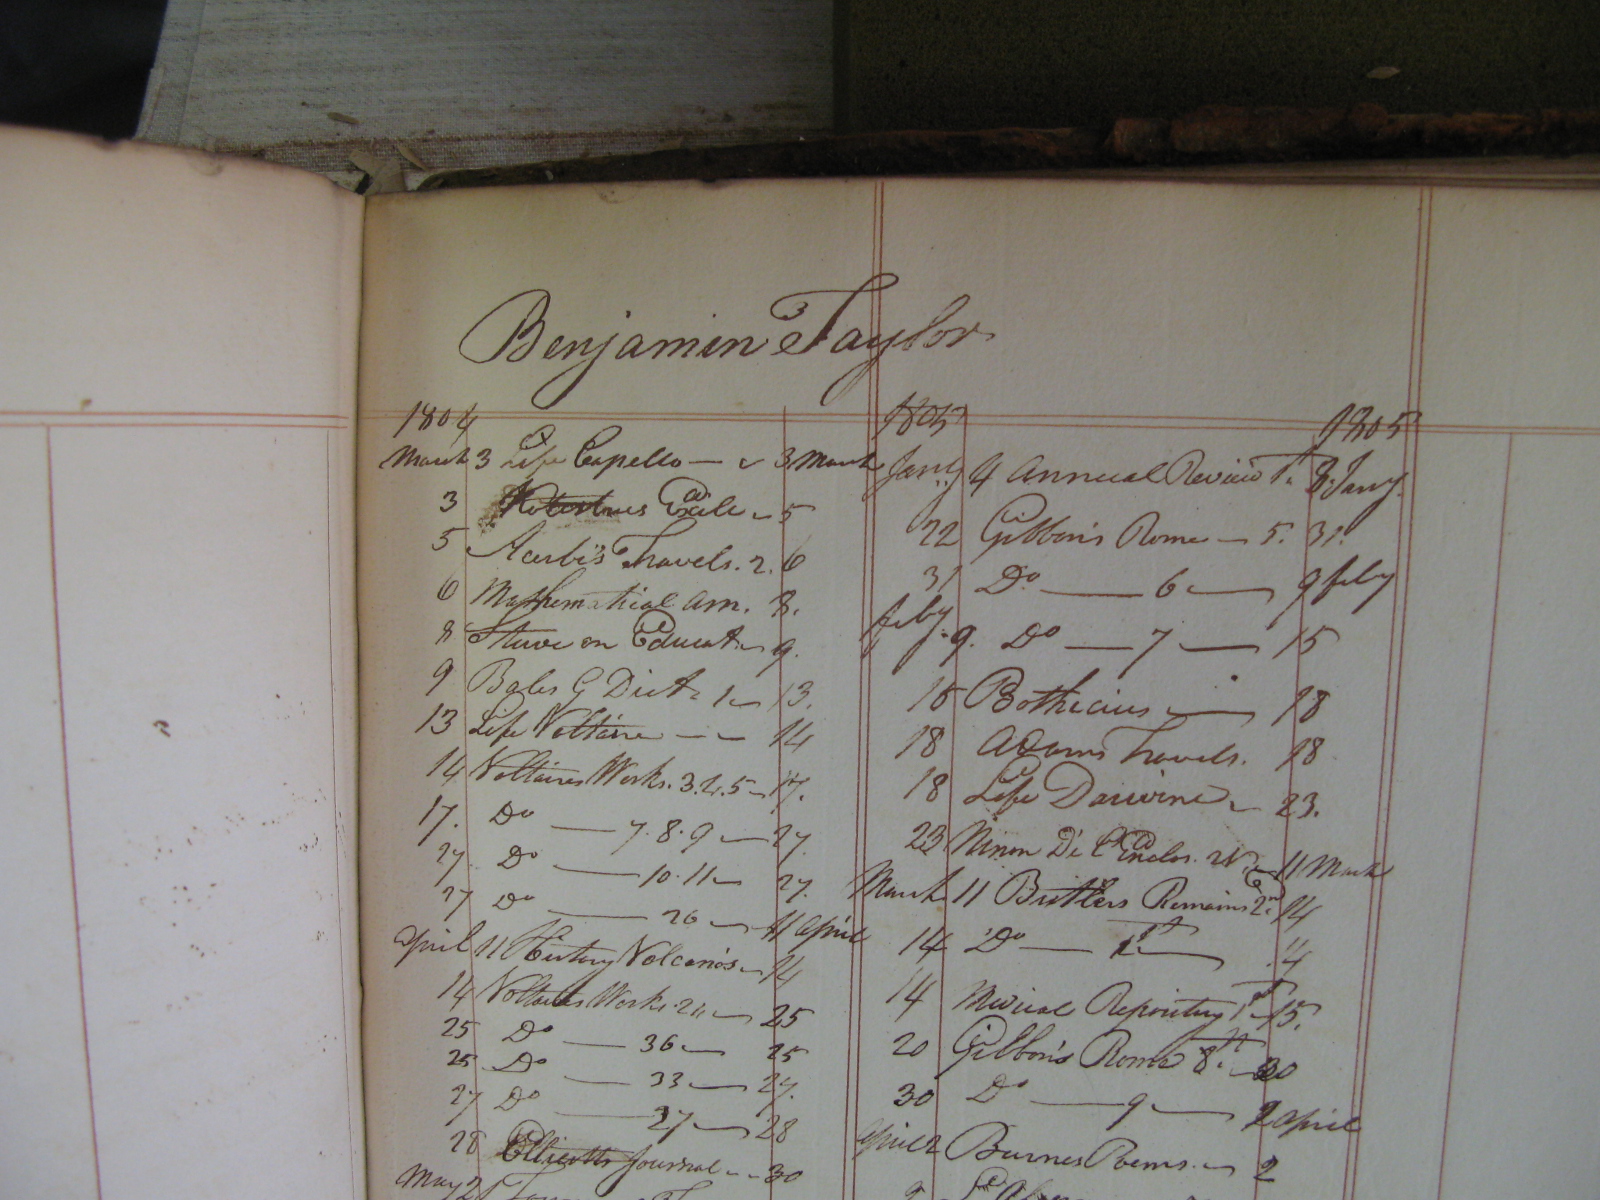 Benjamin Taylor
1804
March 3 Life Capello — 3 March
3 Exile 5
5 Acerbi's Travels. 2. 6
6 Mathematical Am. 8.
8 on Educat. 9.
9 G Dict. 1 13.
13 Life Voltaire — — 14
14 Voltaires Works. 3.4.5 17.
17. Do — 7.8.9 — 27.
27 Do — 10.11 27.
27 Do — 26 — 11 April
April 11 History Volcano's 14
14 Voltaires Works. 24 25
25 Do — 36 — 25
25 Do — 33 — 27.
27 Do — 27 — 28
28 Ellicotts Journal 30
May 2
1805 1805
Jany. 4 Annual Review 1. 8 Jany.
22 Gibbon's Rome — 5. 31.
31 Do — 6 — 9 feby
feby. 9. Do — 7 — 15
18
18 Adams Travels. 18
18 Life Darwine 23.
23 Ninon De L'Enclos. 11 March
March 11 Butlers Remains 2nd 14
14 Do — 1st 14
14 Medical Repository 1st 15.
20 Gibbon's Rome 8th 30
30 Do — 9 — 2 April
April 2 Burnes Poems. 2